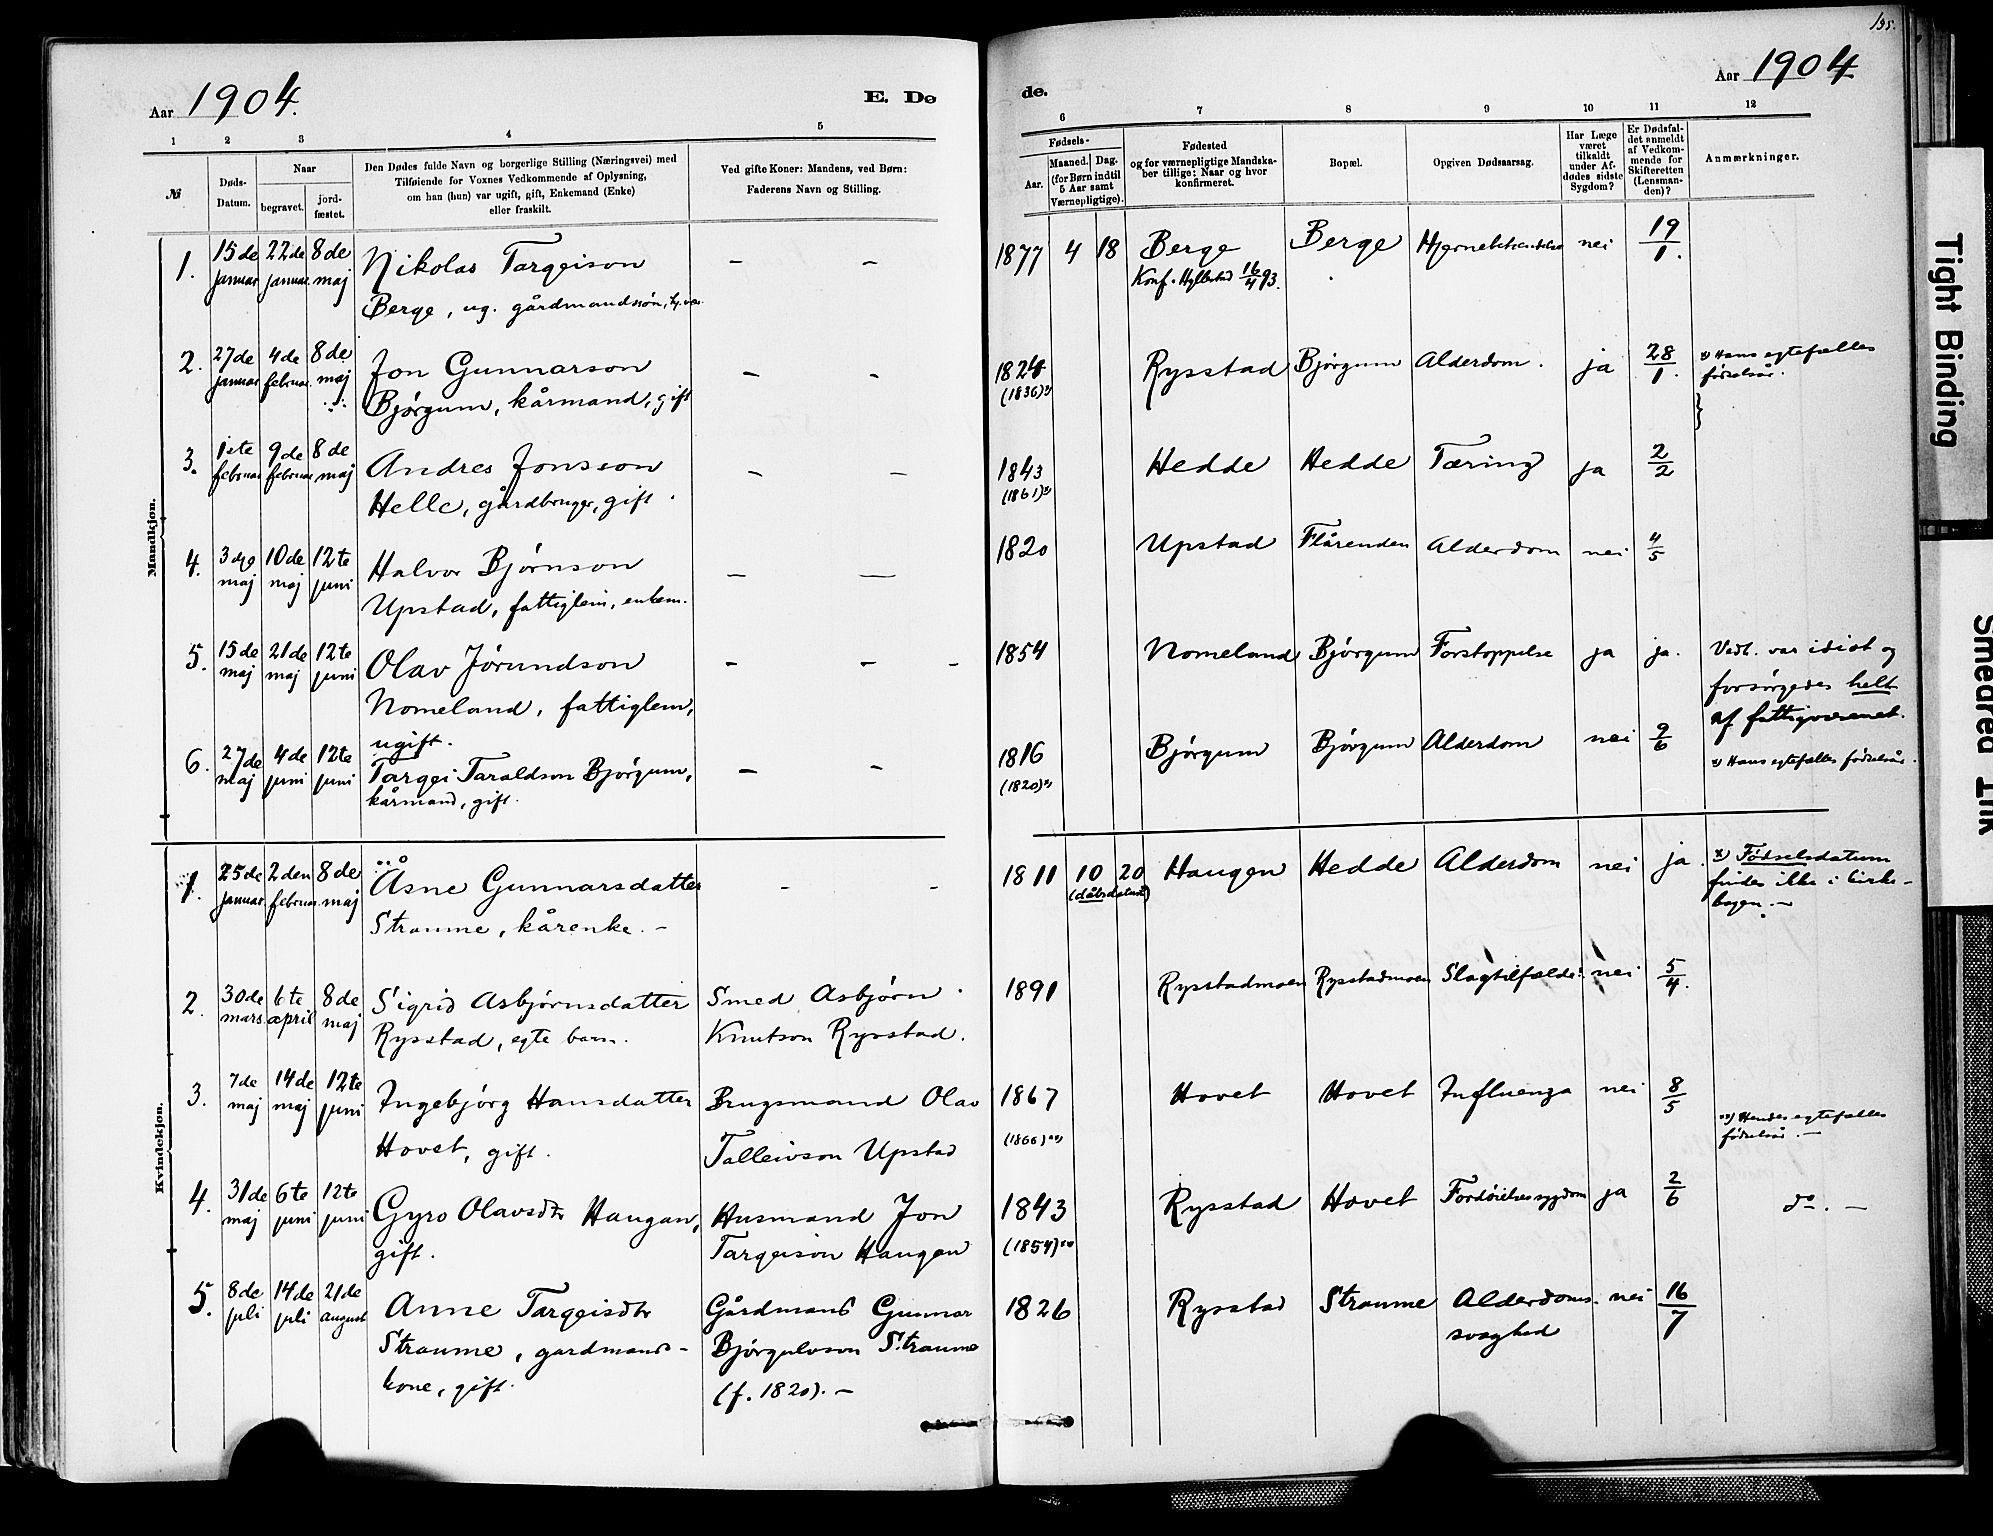 135.
Aar 1904.
E. De
de.
Aar 1904
1 2 3 4 5
6 7 8 9 10 11 12
№
Døds-
Datum.
Naar
begravet.
jord-
fæstet.
Den Dødes fulde Navn og borgerlige Stilling (Næringsvei) med
Tilføiende for Voxnes Vedkommende af Oplysning,
om han (hun) var ugift, gift, Enkemand (Enke)
eller fraskilt.
Ved gifte Koner: Mandens, ved Børn:
Faderens Navn og Stilling.
Fødsels-
Aar.
Maaned. Dag.
(for Børn indtil
5 Aar samt
Værnepligtige).
Fødested
og for værnepligtige Mandska-
ber tillige: Naar og hvor
konfirmeret.
Bopæl.
Opgiven Dødsaarsag.
Har Læge
været
tilkaldt
under Af-
dødes sidste
Sygdom?
Er Dødsfal-
det anmeldt
af Vedkom-
mende for
Skifteretten
(Lensman-
den)?
Anmærkninger.
Mandkjøn.
1. 15de januar 22de januar 8de maj Nikolas Targeison
Berge, ug. gårdmandssøn,
— —
1877 4 18 Berge Berge nei 19/1.
Konf. Hyllestad 16/4 93.
2. 27de januar 4de februar 8de maj Jon Gunnarson
Bjørgum, kårmand, gift
— —
1824 Rysstad Bjørgum Alderdom. ja 28/1.
(1836)x)
x) Hans egtefælles
fødselsår.
3. 1ste februar 9de februar 8de maj Andres Jonsson
Helle, gårdbruger, gift.
— —
1843 Hedde Hedde Tæring ja 2/2
(1861)x)
4. 3die maj 10de maj 12te juni Halvor Bjørnson
Upstad, fattiglem, enkem.
— —
1820 Upstad Flårenden Alderdom nei 4/5
5. 15de maj 21de maj 12te juni Olav Jørundson
Nomeland, fattiglem,
ugift.
— — —
1854 Nomeland Bjørgum Forstoppelse ja ja.
Vedk. var idiot og
forsørgedes helt
af fattigvæsenet.
6. 27de maj 4de juni 12te juni Targei Taraldson Bjørgum,
kårmand, gift.
— —
1816 Bjørgum Bjørgum Alderdom nei 2/6
(1820)x)
x) Hans egtefælles fødselsår.
Kvindekjøn.
1. 25de januar 2den februar 8de maj Åsne Gunnarsdatter
Straume, kårenke. —
— —
1811 10 20 Haugen Hedde Alderdom nei ja.
(dåbsdatum)
x) Fødselsdatum
findes ikke i kirke-
bogen. —
2. 30de mars 6te april 8de maj Sigrid Asbjørnsdatter
Rysstad, egte barn.
Smed Asbjørn
Knutson Rysstad.
1891 Rysstadmoen Rysstadmoen Slagtilfælde nei 5/4.
3. 7de maj 14de maj 12te juni Ingebjørg Hansdatter
Hovet, gift.
Brugsmand Olav
Talleivson Upstad
1867 Hovet Hovet Influenza nei 8/5
(1866)xx)
xx) Hendes egtefælles
fødselsår. —
4. 31de maj 6te juni 12te juni Gyro Olavsdtr Haugan,
gift.
Husmand Jon
Targeison Haugen
1843 Rysstad Hovet Fordøielsessygdom ja 2/6
(1854)xx)
do. —
5. 8de juli 14de juli 21de august Anne Targeisdtr
Straume, gardmands-
kone, gift.
Gårdmand Gunnar
Bjørgulvson Straume
(f. 1820). —
1826 Rysstad Straume Alderdoms- nei 16/7
svaghed
Tight Binding
Smeared